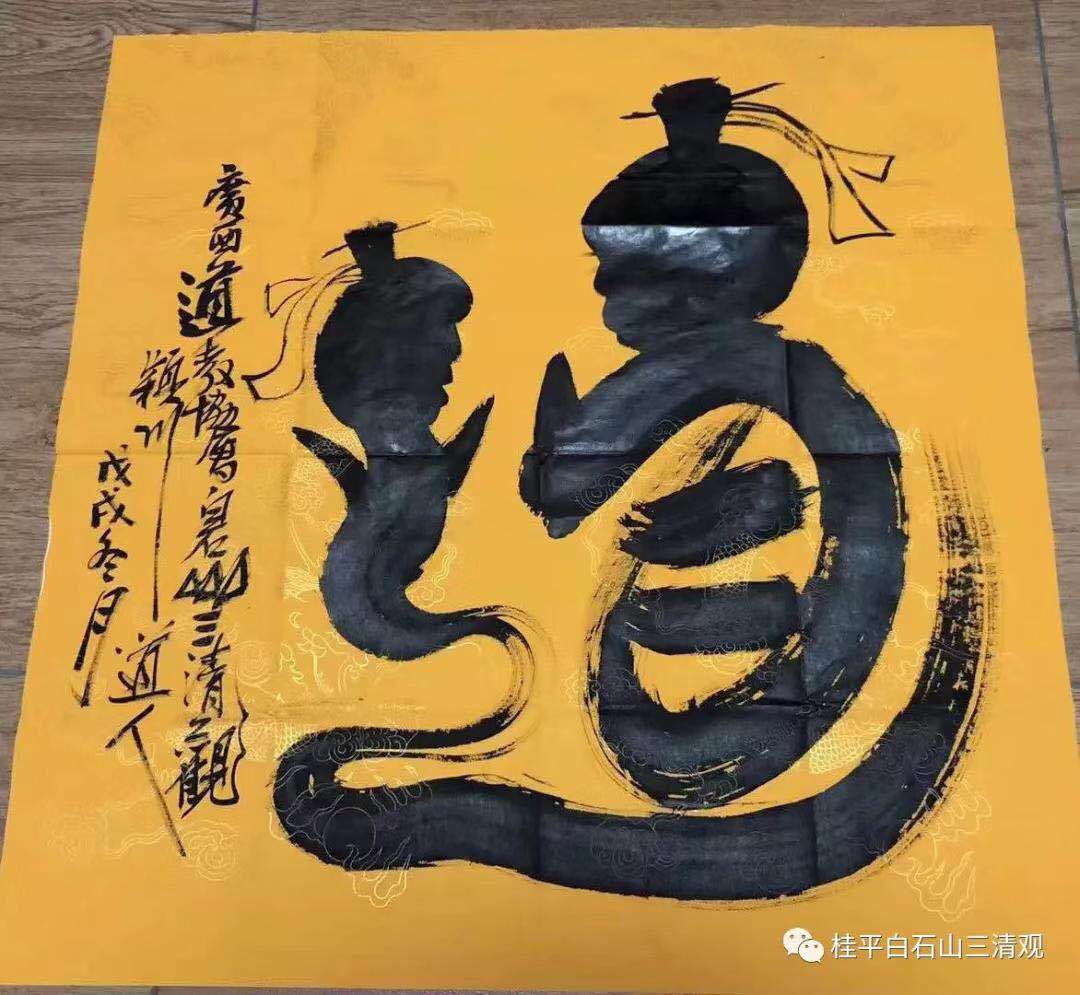 道
廣西道教協會白石山三清觀
穎川道人
戊戌冬月
桂平白石山三清观